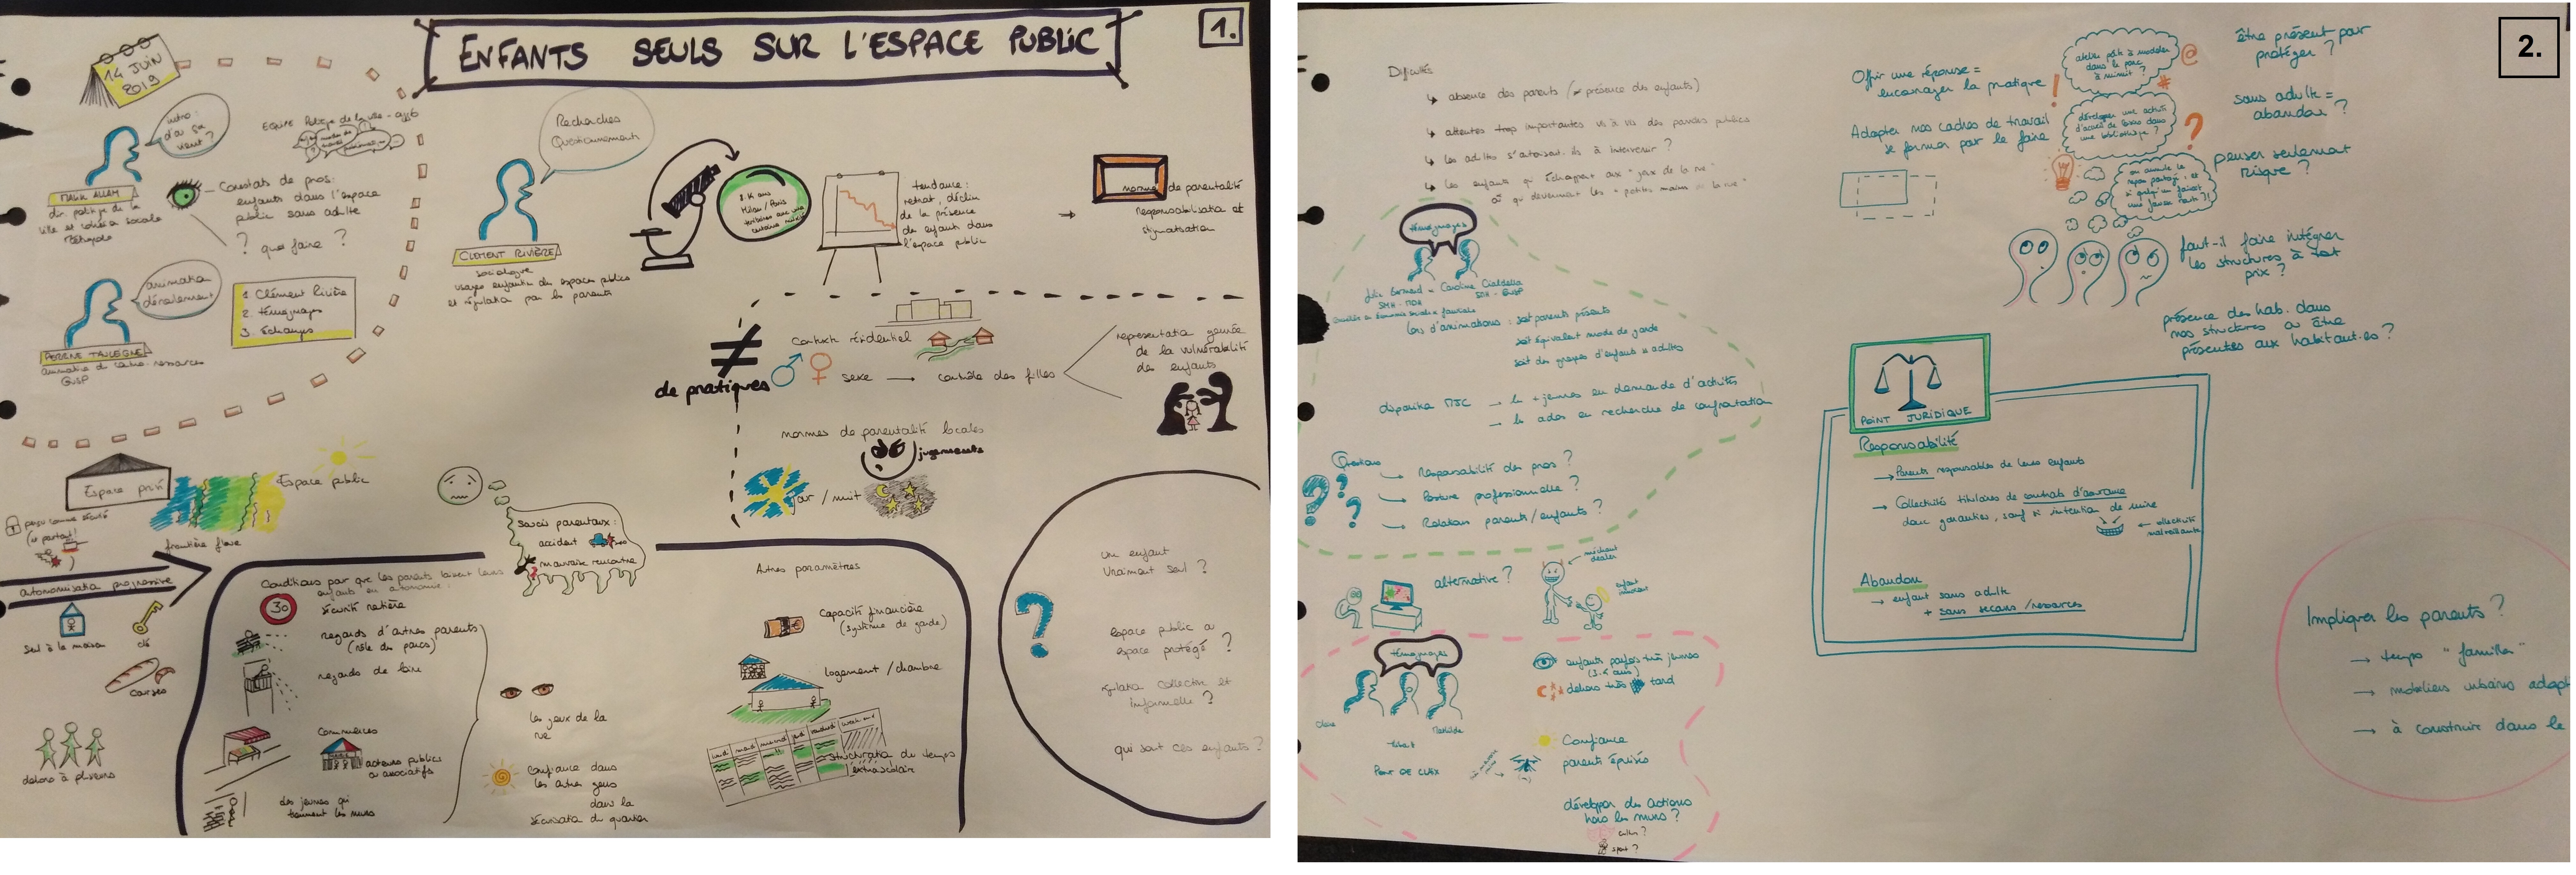 1.
ENFANTS SEULS SUR L'ESPACE PUBLIC
14 JUIN
2019
intro :
d'où ça
vient ?
MALIK ALLAM
dir. politique de la
ville et cohésion sociale
Métropole
Constats de pros :
enfants dans l'espace
public sans adulte
? que faire ?
animation
déroulement
1. Clément Rivière
2. témoignages
3. échanges
animatrice du centre-ressources
GUSP
Recherches
Questionnement
CLEMENT RIVIÈRE
sociologue
usages enfantins des espaces publics
et régulation par les parents
8.11 ans
Milan / Paris
tendance :
retrait, déclin
de la présence
des enfants dans
l'espace public
norme de parentalité
responsabilisation et
stigmatisation
≠
de pratiques
contexte résidentiel
sexe → contrôle des filles
représentation genrée
de la vulnérabilité
des enfants
normes de parentalité locales
jugements
jour / nuit
Espace privé
Espace public
perçu comme sécurité
(is partout!
)
frontière floue
autonomisation progressive
seul à la maison
clé
courses
dehors à plusieurs
soucis parentaux :
accident
mauvaise rencontre
Conditions pour que les parents laissent leurs
enfants en autonomie :
30
sécurité routière
regards d'autres parents
(rôle des parcs)
regards de loin
commerces
acteurs publics
ou associatifs
des jeunes qui
tiennent les murs
les yeux de la
rue
confiance dans
les autres gens
dans la
sécurisation du quartier
Autres paramètres
Capacité financière
(système de garde)
logement / chambre
lundi mardi mercredi jeudi vendredi week-end
structuration du temps
extrascolaire
?
un enfant
vraiment seul ?
espace public ou
espace protégé ?
régulation collective et
informelle ?
qui sont ces enfants ?
2.
Difficultés
↳ absence des parents (≠ présence des enfants)
↳ attentes trop importantes vis à vis des pouvoirs publics
↳ les adultes s'autorisent-ils à intervenir ?
↳ les enfants qui échappent aux "yeux de la rue"
où qui deviennent les "petites mains de la rue"
témoignages
SMH - MDH
GUSP
Conseillère en économie sociale & familiale
lors d'animations : soit parents présents
soit équivalent mode de garde
soit des groupes d'enfants ss adultes
disparition MJC → les + jeunes en demande d'activités
→ les ados en recherche de confrontation
Questions
???
→ Responsabilité des pros ?
→ Posture professionnelle ?
→ Relations parents/enfants ?
alternative ?
méchant
dealer
enfant
innocent
témoignages
Claire
Mathilde
PONT DE CLAIX
enfants parfois très jeunes
(3.4 ans)
dehors très tard
Confiance
parents épuisés
développer des actions
hors les murs ?
culture ?
sport ?
Offrir une réponse =
encourager la pratique
!
Adapter nos cadres de travail
se former par le faire
atelier pâte à modeler
dans le parc
à minuit ?
@
#
développer une activité
d'accueil de loisirs dans
une bibliothèque ?
?
on annule le
repas partagé, et
si quelqu'un faisait
une fausse route ?!
être présent pour
protéger ?
sans adulte =
abandon ?
penser seulement
risque ?
faut-il faire intégrer
les structures à tout
prix ?
présence des hab. dans
nos structures ou être
présent.es aux habitant.es ?
POINT JURIDIQUE
Responsabilité
→ Parents responsables de leurs enfants
→ Collectivités titulaires de contrats d'assurance
donc garanties, sauf si intention de nuire
← collectivité
malveillante
Abandon
→ enfant sans adulte
+ sans secours / ressources
Impliquer les parents ?
→ temps "familles"
→ mobiliers urbains adapt
→ à construire dans le